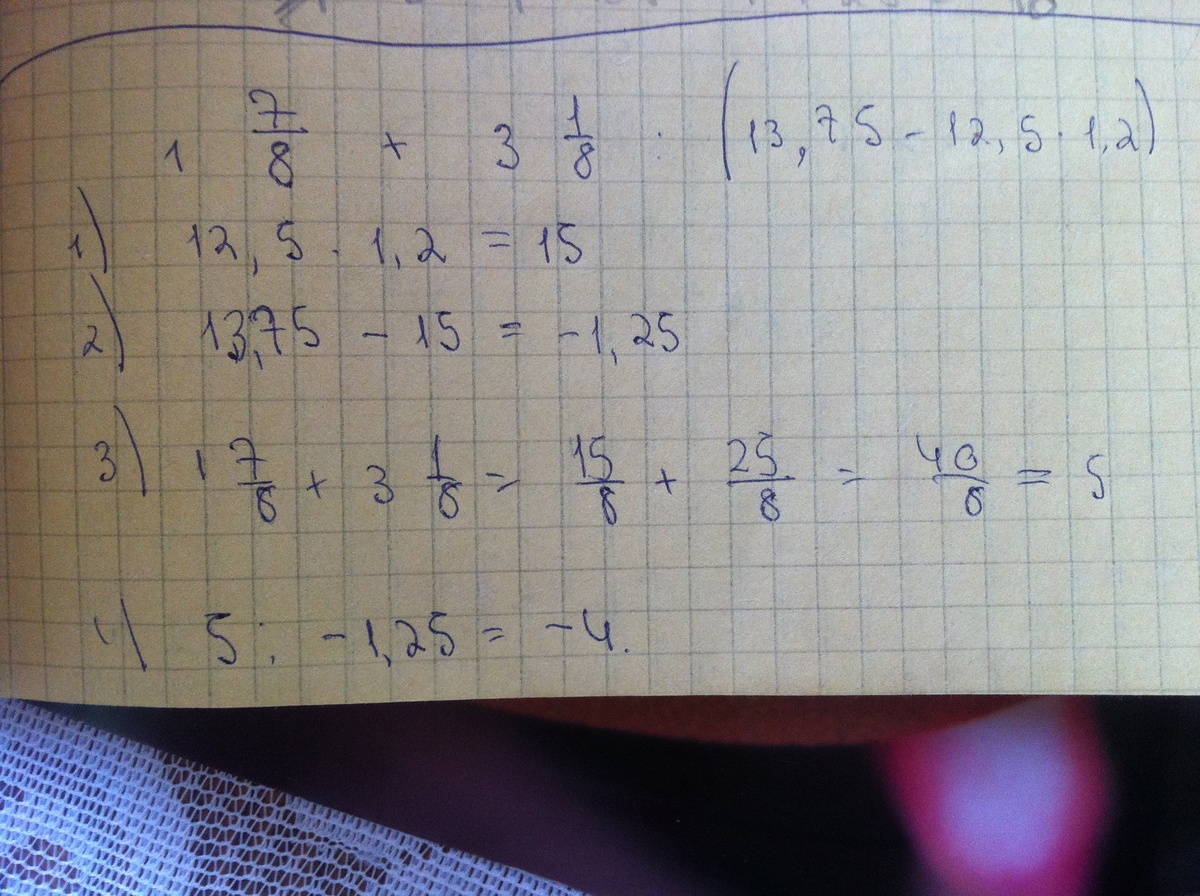 1 7/8 + 3 1/8 : (13,75 - 12,5 · 1,2)
1) 12,5 · 1,2 = 15
2) 13,75 - 15 = -1,25
3) 1 7/8 + 3 1/8 = 15/8 + 25/8 = 40/8 = 5
4) 5 : -1,25 = -4.